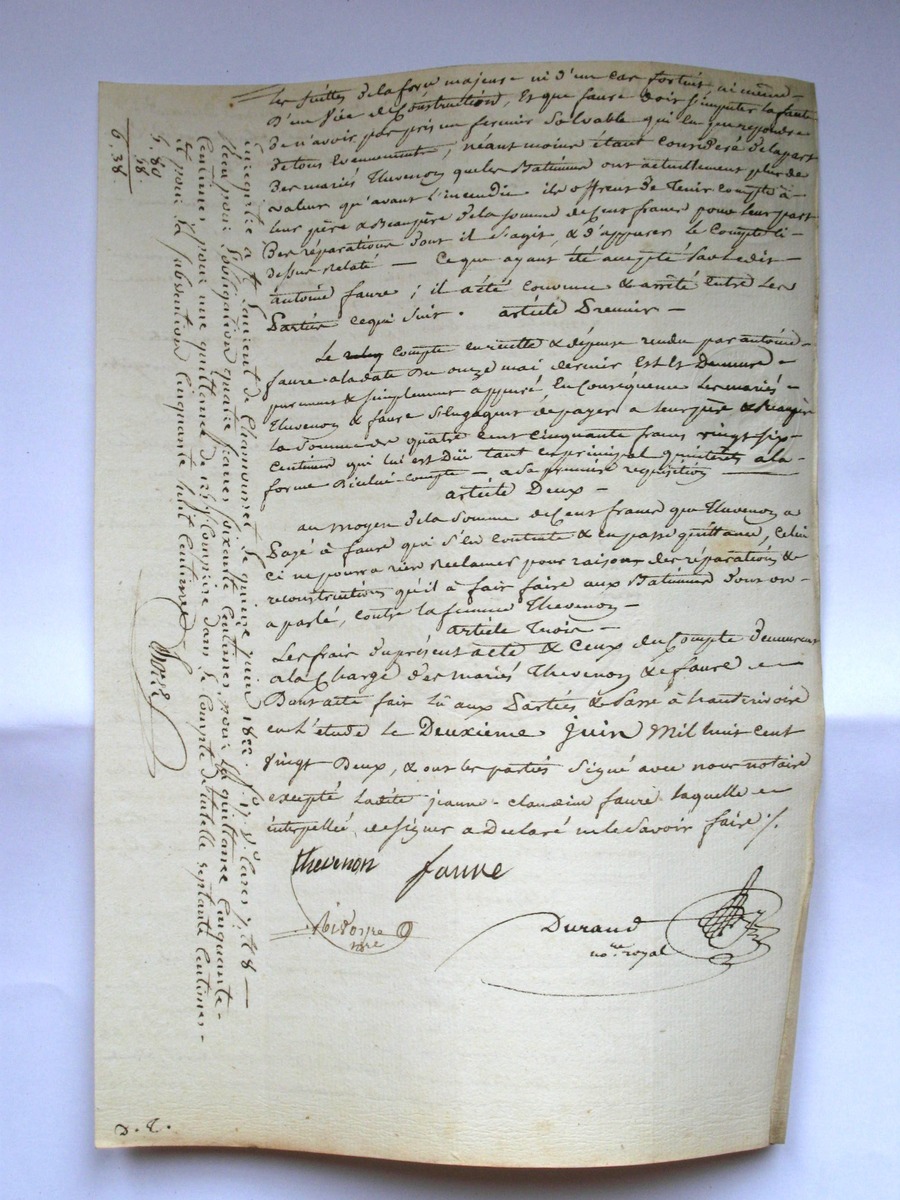 les suittes de la force majeure ni d'un cas fortuit ni même
D'un vice de Construction, Et que faure doit s'imputer la faute
de n'avoir pas pris un fermier solvable qui lui répondre
de tous Evenements, néant moins étant considéré de la part
des mariés Thevenon que les Batiments ont actuellement plus de
valeur qu'avant l'incendie ils offrent de Tenir compte à
leur père & Beaupère de la somme de Cent francs pour leur part
Des réparations dont il s'agit, & d'appurer le Compte ci-
dessus relaté — Ce que ayant été accepté par ledit
antoine faure ; il a été convenu & arrêté entre les
Parties ce qui suit. article Premier —
Le Compte en recette & dépense rendu par antoine
faure à la date du onze mai dernier Est & Demeure
purement & simplement appuré, En Conséquence les mariés
Thevenon & faure s'engagent de payer a leur père & Beaupère
la somme de quatre cent cinquante francs vingt six
centimes qui lui est Düe tant en principal qu'intérêts à la
forme d'icelui compte — a sa première requisition —
article Deux —
au moyen de la somme de Cent francs que Thevenon a
Payé à faure qui s'en contente & en passe quittance, Celui
Ci ne pourra rien Reclamer pour raison des réparations &
reconstructions qu'il à fait faire aux Batiments dont on
a parlé, contre la femme Thevenon —
article Trois —
Les frais du présent acte & Ceux du Compte demeurent
a la Charge des mariés Thevenon & faure
Dont acte fait lû aux Parties & Passé à hauterivoire
en L'étude le Deuxième juin Mil huit cent
vingt Deux, & ont les parties signé avec nous notaire
excepté ladite jeanne-claudine faure laquelle
interpellée de signer a Declaré ne le savoir faire ./.
Thevenon faure
Durand
no.re royal
Enregistré à St Laurent de Chamousset le quinze juin 1822. f.o 17. v.o Cases 7. & 8 —
Reçu pour l'obligation quatre francs soixante Centimes, pour la quittance Cinquante-
Centimes, pour une quittance de 125f Comprise dans le Compte de tutelle septante Centimes
Et pour la subvention Cinquante huit Centimes
5. 80
58
6. 38.